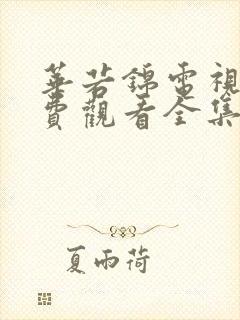 華若錦電視
費觀看全集
夏雨荷